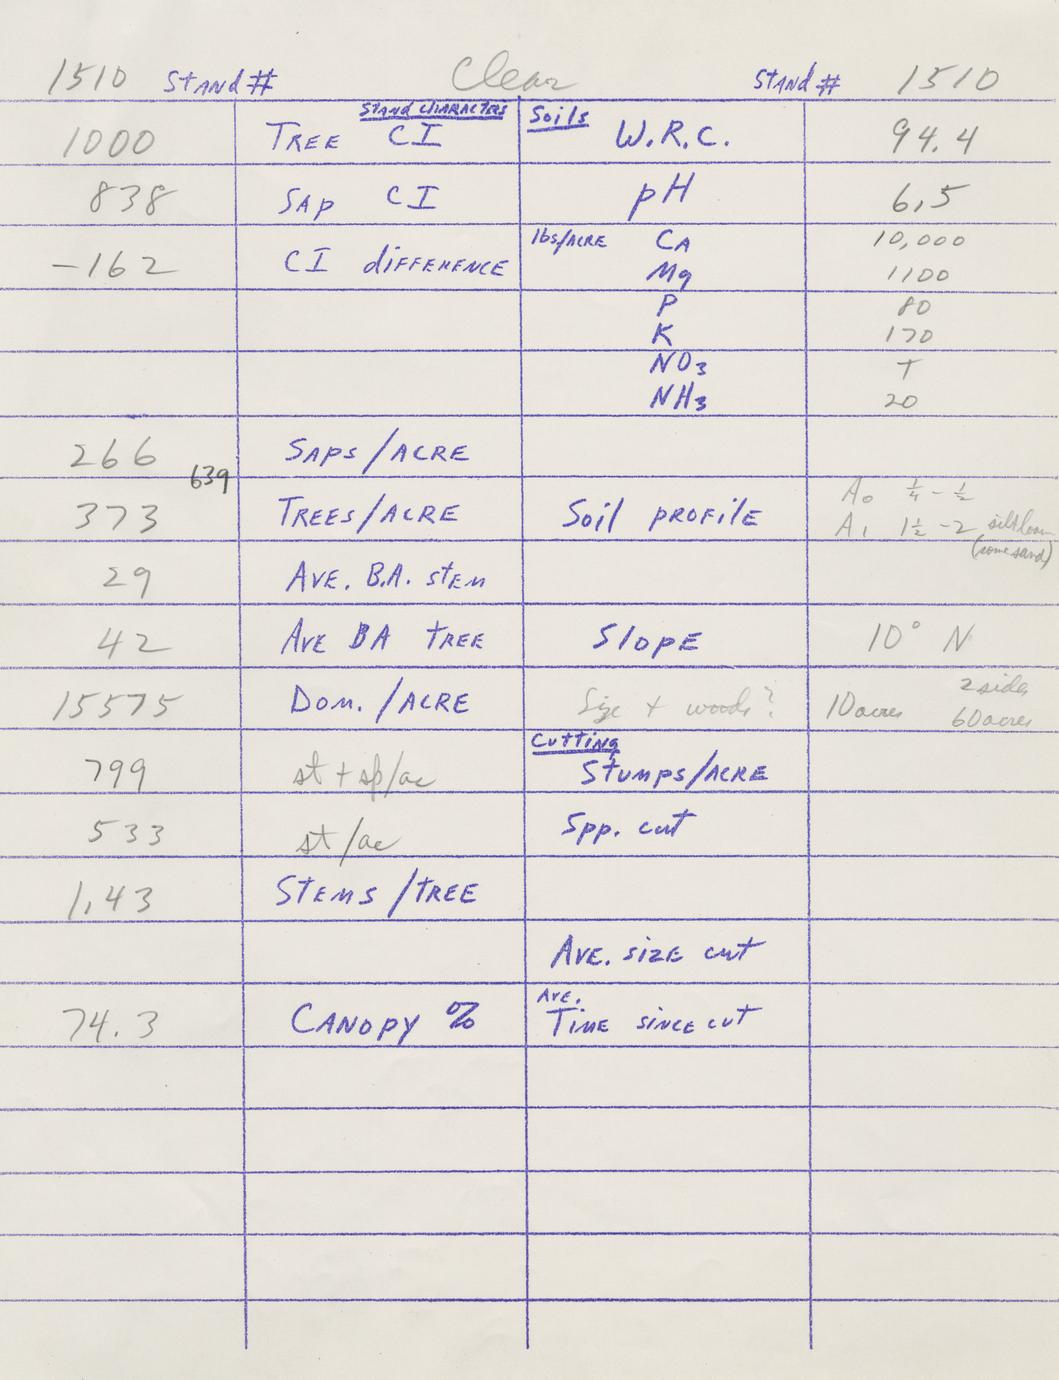 1510 STAND # Clear STAND # 1510
STAND CHARACTERS Soils
1000 TREE CI W.R.C. 94.4
838 SAP CI pH 6.5
-162 CI DIFFERENCE lbs/ACRE CA 10,000
Mg 1100
P 80
K 170
NO3 T
NH3 20
266 SAPS/ACRE
639
373 TREES/ACRE Soil PROFILE A0 1/4 - 1/2
A1 1 1/2 - 2 silt loam
(some sand)
29 AVE. B.A. STEM
42 AVE BA TREE SLOPE 10° N
15575 DOM./ACRE Size + woods? 10 acres 2 sides
60 acres
Cutting
799 st + sp/ac STUMPS/ACRE
533 st/ac Spp. cut
1.43 STEMS/TREE
AVE. SIZE CUT
74.3 CANOPY % AVE.
TIME SINCE CUT